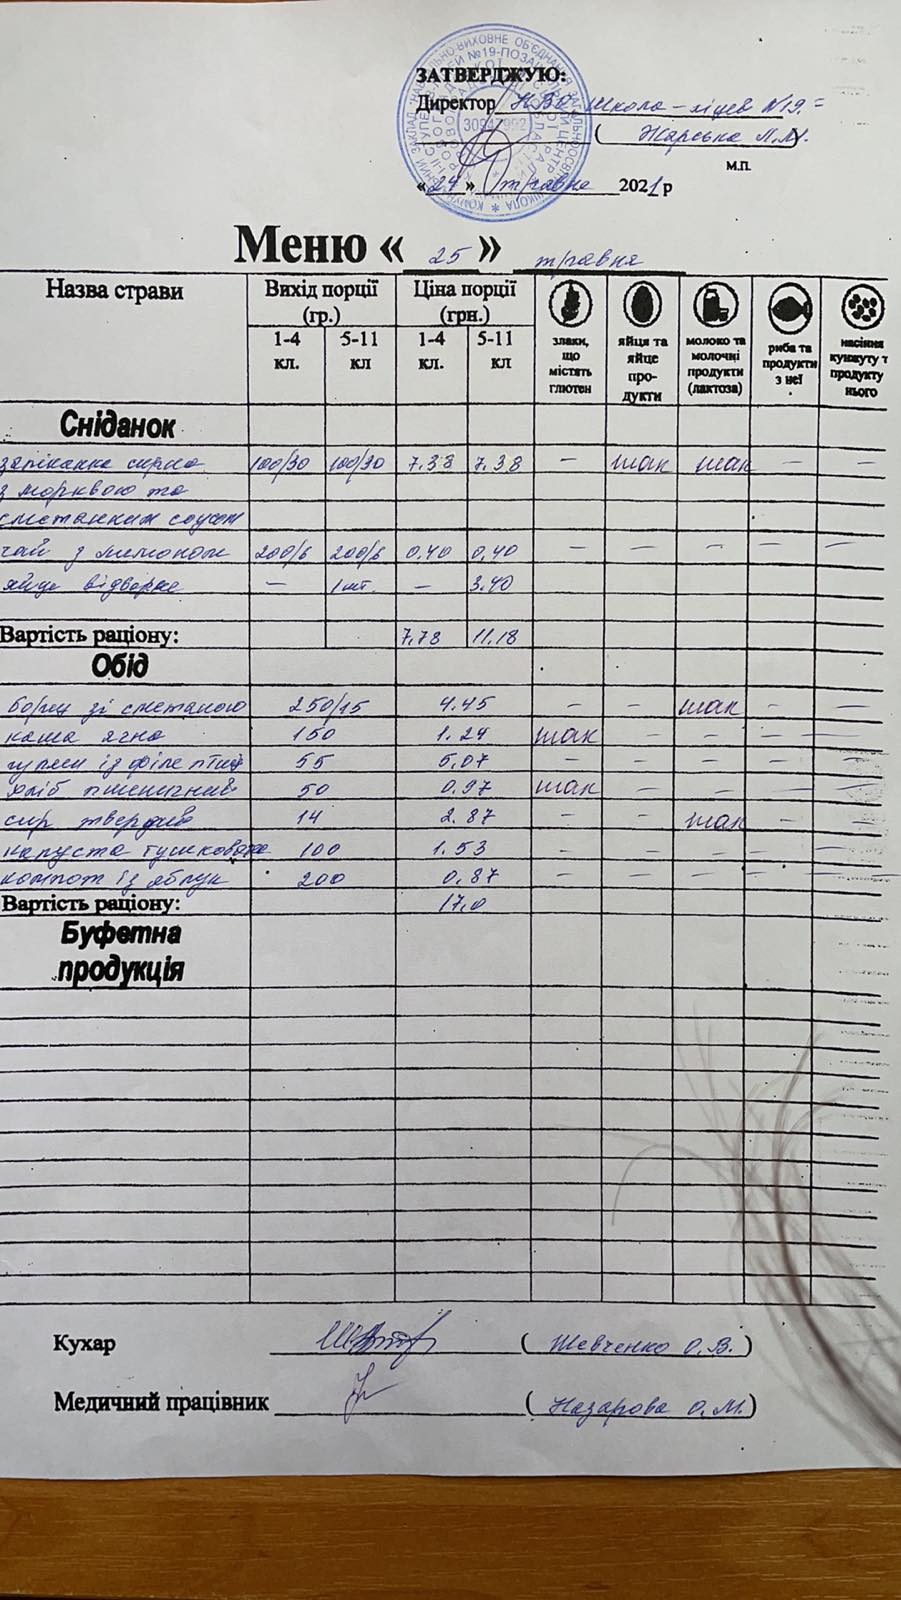 ЗАТВЕРДЖУЮ:
Директор НВО, Школа-ліцей №19=
( Жарська Л.М. )
М.П.
« 24 » травня 2021 р
30947992
Меню « 25 » травня
Назва страви Вихід порції (гр.) Ціна порції (грн.) злаки, що містять глютен яйця та яйце про-дукти молоко та молочні продукти (лактоза) риба та продукти з неї насіння кунжуту т продукту нього
1-4 кл. 5-11 кл 1-4 кл. 5-11 кл
Сніданок
запіканка сирна 100/30 100/30 7.38 7.38 – так так – –
з морквою та
сметанним соусом
чай з лимоном 200/6 200/6 0,40 0,40 – – – – –
яйце відварне – 1шт. – 3.40
Вартість раціону: 7,78 11.18
Обід
борщ зі сметаною 250/15 4.45 – – так – –
каша ячна 150 1.24 так – – – –
гуляш із філе птиці 55 5,07 – – – – –
хліб пшеничний 50 0.97 так – – – –
сир твердий 14 2.87 – – так – –
капуста тушкована 100 1.53 – – – – –
компот із яблук 200 0,87 – – – – –
Вартість раціону: 17,0
Буфетна
продукція
Кухар ( Шевченко О.В. )
Медичний працівник ( Назарова О.М. )